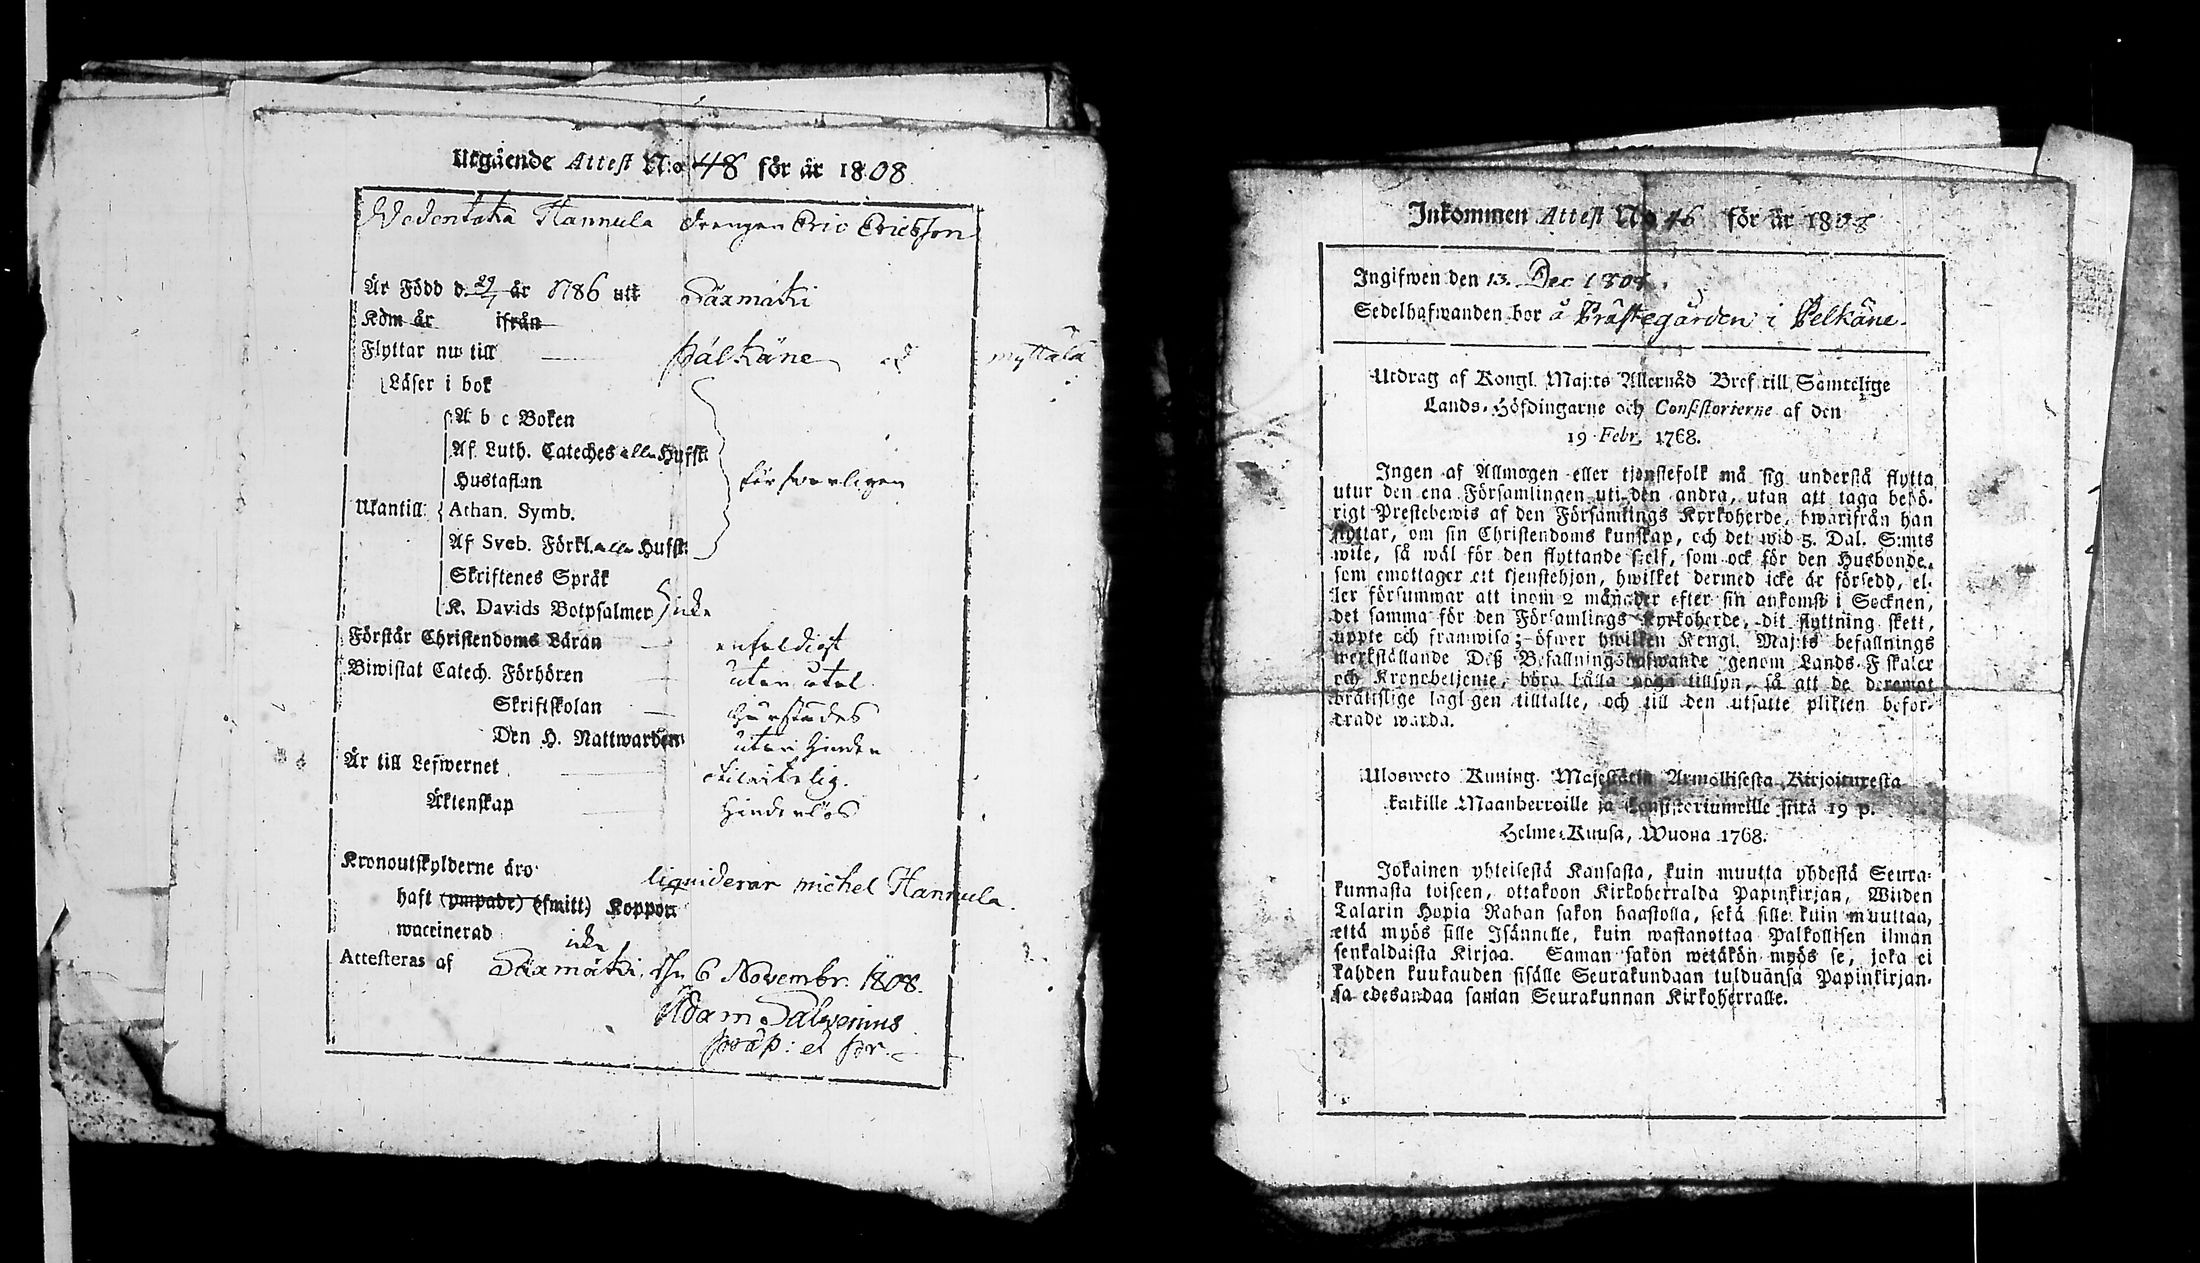 Utgående Attest N:o 48 för år 1808
Wedentaka Hannula Drengen Eric Ericsson
Är Född d. 29/7 år 1786 uti Säxmäki
Kom år ifrån
Flyttar nu till Pälkäne myttälä
Läser i bok
A b c Boken
Af Luth. Cateches alla Hufst.
Hustaflan
försvarligen
Utantill Athan. Symb.
Af Sveb. Förkl. alla Hufst.
Skriftenes Språk
K. Davids Botpsalmer icke
Förstår Christendoms Läran enfaldigt
Biwistat Catech. Förhören utan utal
Skriftskolan härstädes
Den H. Nattwarden utan hinder
Är till Lefwernet
Äktenskap hinderlös
Kronoutskylderne äro liquiderar michel Hannula.
haft (ympade) (smitt) Koppor
waccinerad icke
Attesteras af Säxmäki, d. 6 Novembr. 1808.
Adam Salvenius
Inkommen Attest No 46 för år 1808
Ingifwen den 13. Dec 1808.
Sedelhafwanden bor å Prästegården i Pelkäne.
Utdrag af Kongl. Maj:ts Allernåd Bref till Samtelige
Lands-Höfdingarne och Consistorierne af den
19 Febr. 1768.
Ingen af Allmogen eller tjenstefolk må sig understå flytta
utur den ena Församlingen uti den andra, utan att taga behö-
rigt Prestebewis af den Församlings Kyrkoherde, hwarifrån han
flyttar, om sin Christendoms kunskap, och det wid 5. Dal. S:mts
wite, så wäl för den flyttande sjelf, som ock för den Husbonde,
som emottager ett tjenstehjon, hwilket dermed icke är försedd, el-
ler försummar att inom 2 månader efter sin ankomst i Socknen,
det samma för den Församlings Kyrkoherde, dit flyttning skett,
uppte och framwisa; öfwer hwilken Kongl. Maj:ts befallnings
werkställande Deß Befallningshafwande genom Lands-Fiskaler
och Kronobetjente, böra hålla noga tillsyn, så att de deremot
brätislige lagligen tilltalte, och till den utsatte plikten befor-
drade warda.
Ulosweto Kuning. Majestätin Armollisesta Kirjoituxesta
kaikille Maanherroille ja Consistoriumeille siitä 19 p.
Helme-Kuusa, Wuona 1768.
Jokainen yhteisestä Kansasta, kuin muutta yhdestä Seura-
kunnasta toiseen, ottakoon Kirkoherralda Papinkirjan, Wiiden
Talarin Hopia Rahan sakon haastolla, sekä sille kuin muuttaa,
että myös sille Isännälle, kuin wastanottaa Palkollisen ilman
senkaldaista Kirjaa. Saman sakon wetäkön myös se, joka ei
kahden kuukauden sisälle Seurakundaan tulduansa Papinkirjan-
sa edesandaa saman Seurakunnan Kirkoherralle.